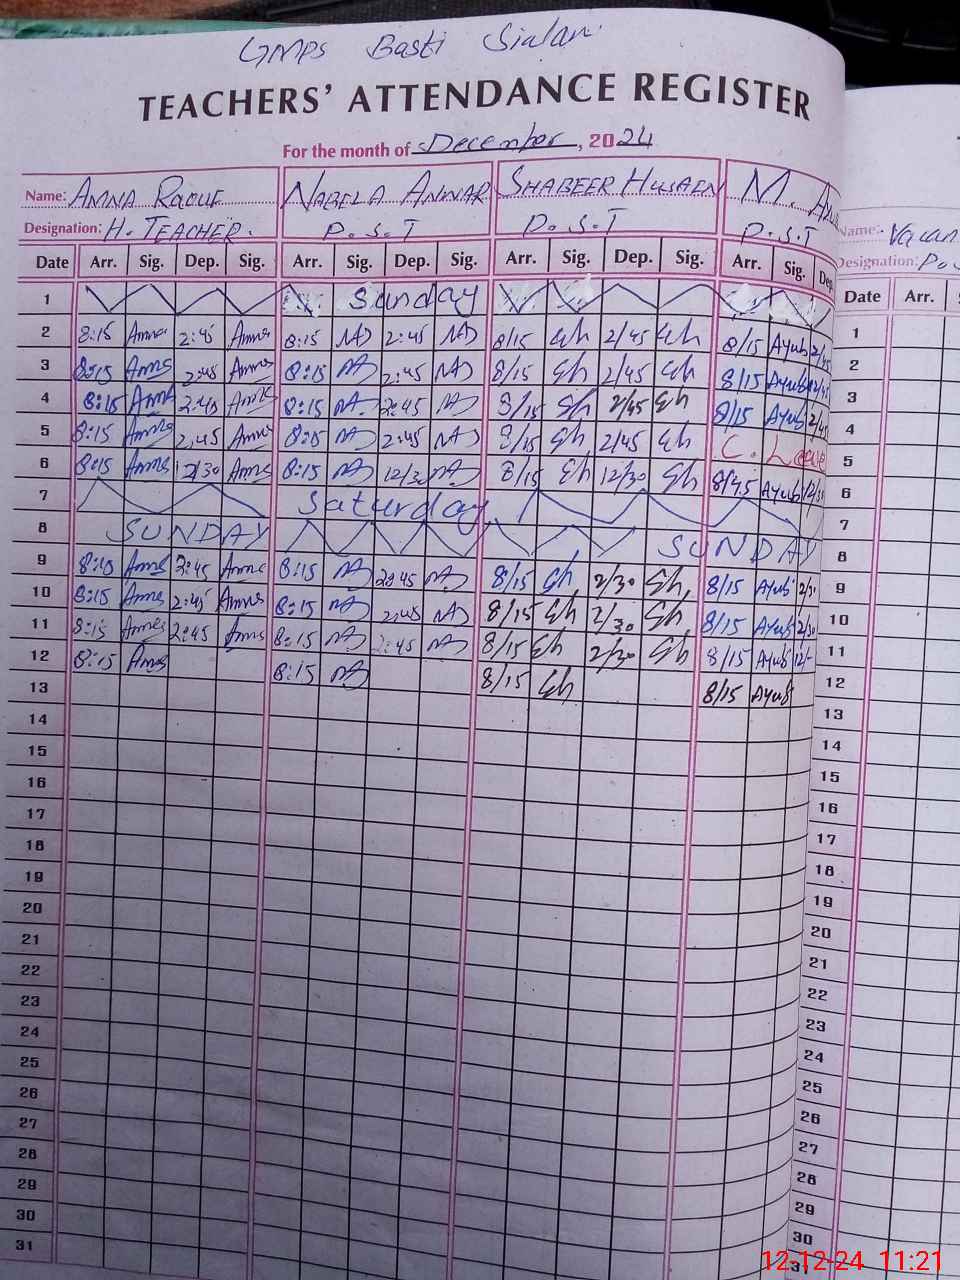 GMPS Basti Sialan
TEACHERS' ATTENDANCE REGISTER
For the month of December, 2024
Name: AMNA RAOUF NABELA ANWAR SHABEER HUSAEN M.
Designation: H. TEACHER. P.S.T P.S.T P.S.T
Name: Vacan
Designation: Po
Date Arr. Sig. Dep. Sig. Arr. Sig. Dep. Sig. Arr. Sig. Dep. Sig. Arr. Sig. Dep.
Date Arr.
1 Sunday
2 8:15 Amna 2:45 Amna 8:15 NA 2:45 NA 8/15 Sh 2/45 Sh 8/15 Ayub 2/45
3 8:15 Amna 2:45 Amna 8:15 NA 2:45 NA 8/15 Sh 2/45 Sh 8/15 Ayub 2/45
4 8:15 Amna 2:45 Amna 8:15 NA 2:45 NA 8/15 Sh 2/45 Sh 8/15 Ayub 2/45
5 8:15 Amna 2:45 Amna 8:15 NA 2:45 NA 8/15 Sh 2/45 Sh C. Leave
6 8:15 Amna 12/30 Amna 8:15 NA 12/30 NA 8/15 Sh 12/30 Sh 8/45 Ayub 12/30
7 Saturday
8 SUNDAY SUNDAY
9 8:15 Amna 2:45 Amna 8:15 NA 2:45 NA 8/15 Sh 2/30 Sh 8/15 Ayub 2/30
10 8:15 Amna 2:45 Amna 8:15 NA 2:45 NA 8/15 Sh 2/30 Sh 8/15 Ayub 2/30
11 8:15 Amna 2:45 Amna 8:15 NA 2:45 NA 8/15 Sh 2/30 Sh 8/15 Ayub
12 8:15 Amna 8:15 NA 8/15 Sh 8/15 Ayub
13
14
15
16
17
18
19
20
21
22
23
24
25
26
27
28
29
30
31
1
2
3
4
5
6
7
8
9
10
11
12
13
14
15
16
17
18
19
20
21
22
23
24
25
26
27
28
29
30
31
12-12-24 11:21